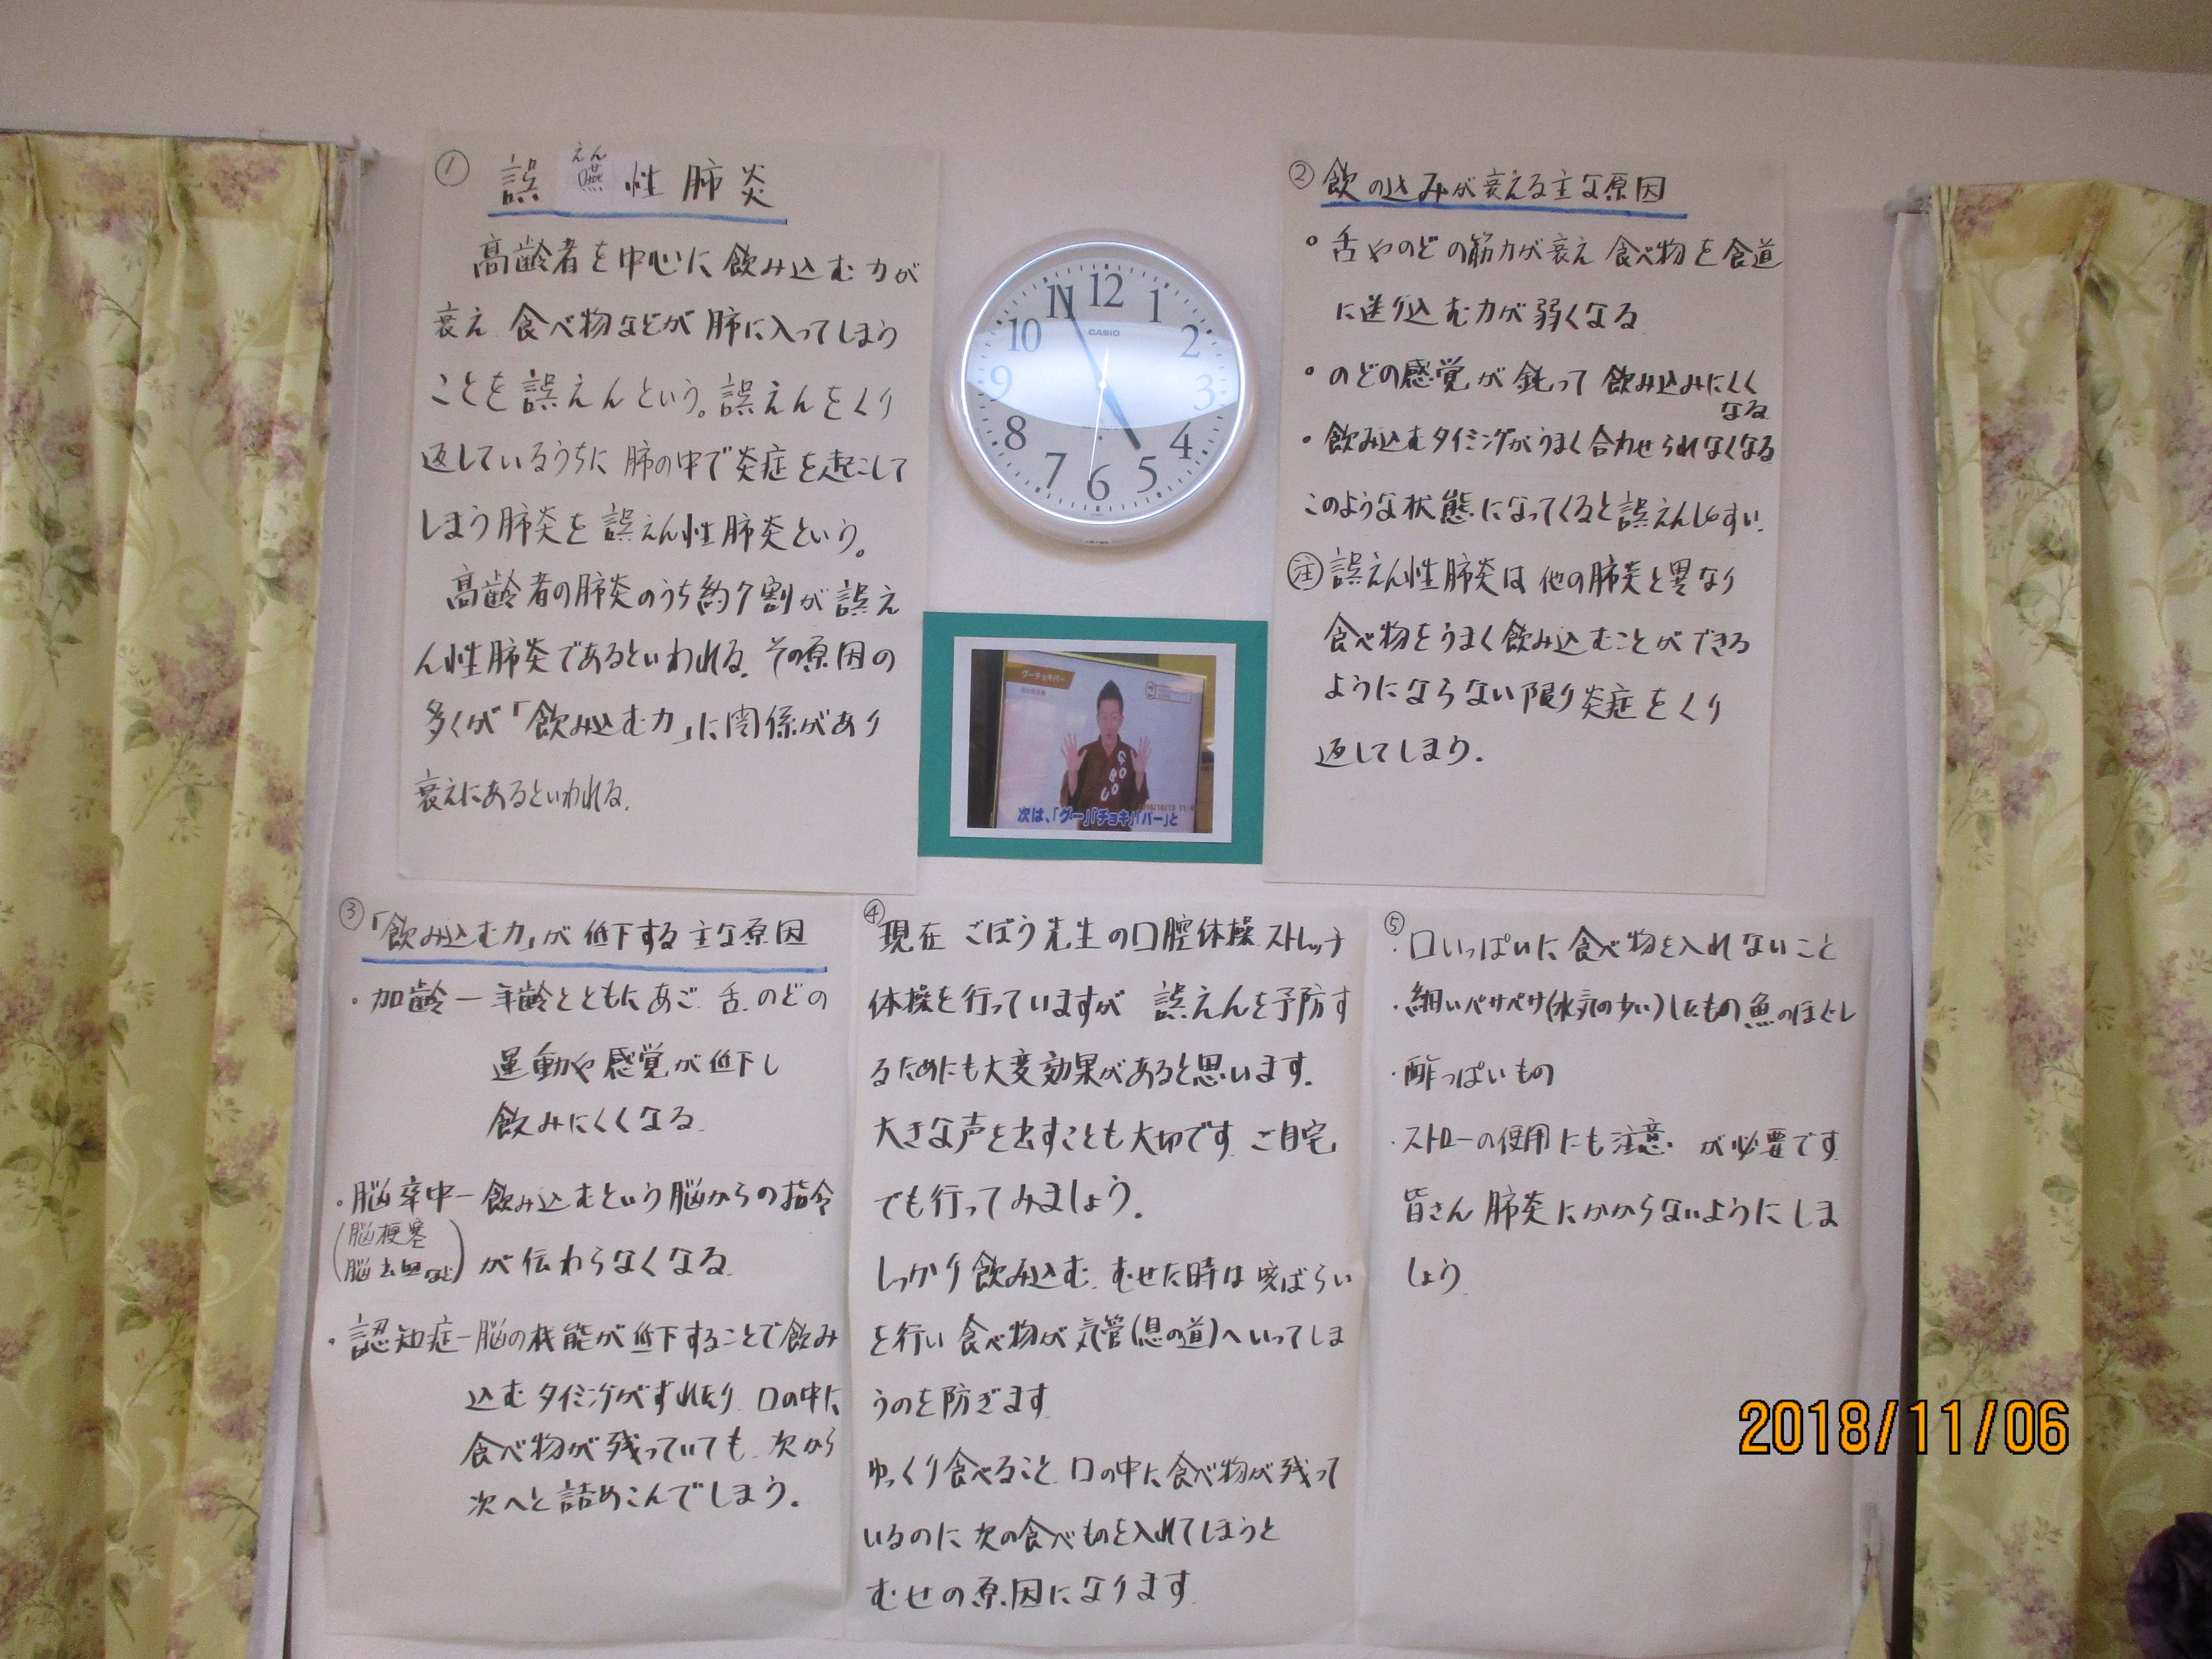 ① 誤嚥性肺炎
えん
高齢者を中心に飲み込む力が
衰え 食べ物などが肺に入ってしまう
ことを誤えんという。誤えんをくり
返しているうちに 肺の中で炎症を起こして
しまう肺炎を誤えん性肺炎という。
高齢者の肺炎のうち約7割が誤え
ん性肺炎であるといわれる。その原因の
多くが「飲み込む力」に関係があり
衰えにあるといわれる。
12
1
2
3
4
5
6
7
8
9
10
11
CASIO
グーチョキパー
GOBOU
次は、「グー」「チョキ」「パー」と
② 飲の込みが衰える主な原因
・舌やのどの筋力が衰え 食べ物を食道
に送り込む力が弱くなる
・のどの感覚が鈍って飲み込みにくく
なる
・飲み込むタイミングがうまく合わせられなくなる
このような状態になってくると誤えんしやすい。
注 誤えん性肺炎は他の肺炎と異なり
食べ物をうまく飲み込むことができる
ようにならない限り炎症をくり
返してしまう。
③「飲み込む力」が低下する主な原因
・加齢ー年齢とともにあご、舌、のどの
運動や感覚が低下し
飲みにくくなる。
・脳卒中ー飲み込むという脳からの指令
(脳梗塞
脳出血など)が伝わらなくなる。
・認知症ー脳の機能が低下することで飲み
込むタイミングがずれたり 口の中に
食べ物が残っていても、次から
次へと詰めこんでしまう。
④ 現在 ごぼう先生の口腔体操、ストレッチ
体操を行っていますが 誤えんを予防す
るためにも大変効果があると思います。
大きな声を出すことも大切です。ご自宅
でも行ってみましょう。
しっかり飲み込む。むせた時は咳ばらい
を行い食べ物が気管(息の道)へいってしま
うのを防ぎます
ゆっくり食べること。口の中に食べ物が残って
いるのに次の食べものを入れてしまうと
むせの原因になります
⑤・口いっぱいに食べ物を入れないこと
・細いパサパサ(水気の少い)したもの 魚のほぐし
・酢っぱいもの
・ストローの使用にも注意が必要です
皆さん肺炎にかからないようにしま
しょう
2018/11/06